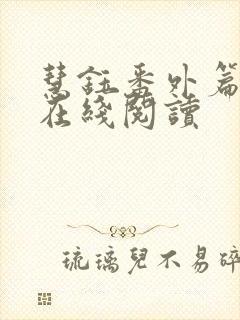 慧鈺番外篇
在綫閱讀
琉璃兒不易碎